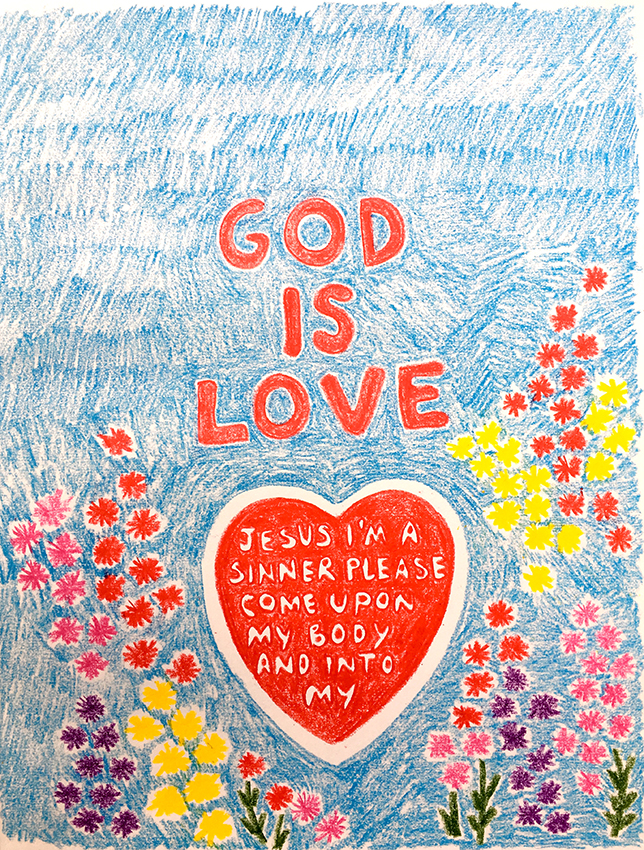 GOD
IS
LOVE
JESUS I'M A
SINNER PLEASE
COME UPON
MY BODY
AND INTO
MY